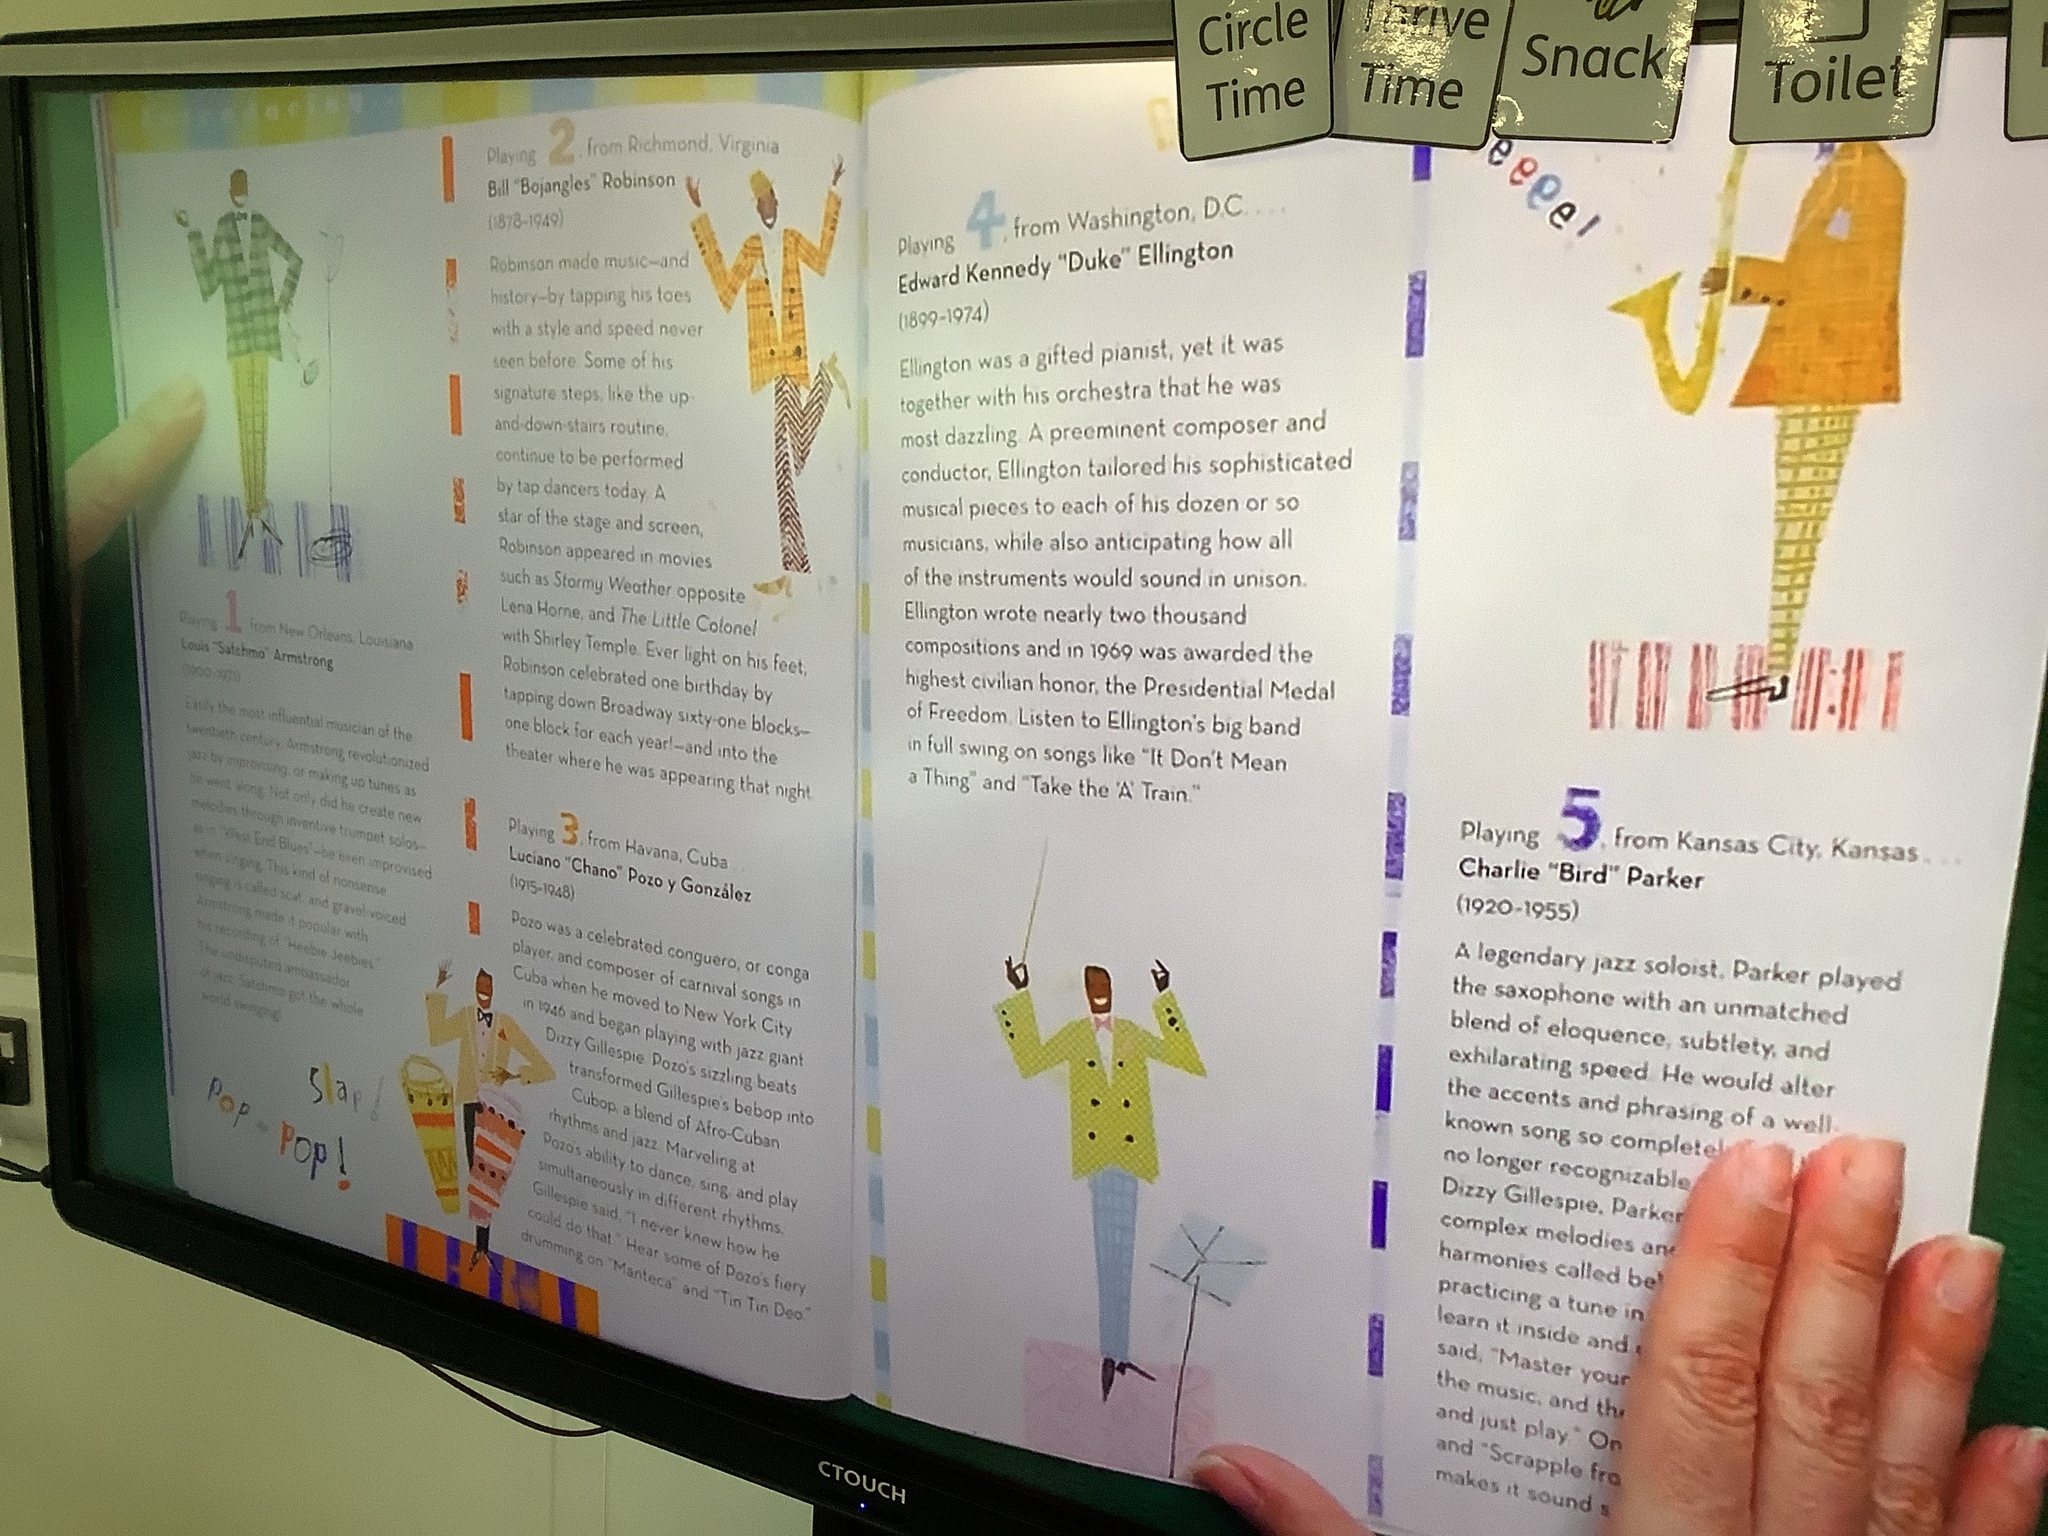 Circle
Time
Thrive
Time
Snack
Toilet
Introducing
Playing 1, from New Orleans, Louisiana...
Louis "Satchmo" Armstrong
(1900-1971)
Easily the most influential musician of the
twentieth century, Armstrong revolutionized
jazz by improvising, or making up tunes as
he went along. Not only did he create new
melodies through inventive trumpet solos—
as in "West End Blues"—he even improvised
when singing. This kind of nonsense
singing is called scat, and gravel-voiced
Armstrong made it popular with
his recording of "Heebie Jeebies."
The undisputed ambassador
of jazz, Satchmo got the whole
world swinging!
Pop - Pop!
Slap!
Playing 2, from Richmond, Virginia
Bill "Bojangles" Robinson
(1878-1949)
Robinson made music—and
history—by tapping his toes
with a style and speed never
seen before. Some of his
signature steps, like the up-
and-down-stairs routine,
continue to be performed
by tap dancers today. A
star of the stage and screen,
Robinson appeared in movies
such as Stormy Weather opposite
Lena Horne, and The Little Colonel
with Shirley Temple. Ever light on his feet,
Robinson celebrated one birthday by
tapping down Broadway sixty-one blocks—
one block for each year!—and into the
theater where he was appearing that night.
Playing 3, from Havana, Cuba...
Luciano "Chano" Pozo y González
(1915-1948)
Pozo was a celebrated conguero, or conga
player, and composer of carnival songs in
Cuba when he moved to New York City
in 1946 and began playing with jazz giant
Dizzy Gillespie. Pozo's sizzling beats
transformed Gillespie's bebop into
Cubop, a blend of Afro-Cuban
rhythms and jazz. Marveling at
Pozo's ability to dance, sing, and play
simultaneously in different rhythms,
Gillespie said, "I never knew how he
could do that." Hear some of Pozo's fiery
drumming on "Manteca" and "Tin Tin Deo."
Playing 4, from Washington, D.C....
Edward Kennedy "Duke" Ellington
(1899-1974)
Ellington was a gifted pianist, yet it was
together with his orchestra that he was
most dazzling. A preeminent composer and
conductor, Ellington tailored his sophisticated
musical pieces to each of his dozen or so
musicians, while also anticipating how all
of the instruments would sound in unison.
Ellington wrote nearly two thousand
compositions and in 1969 was awarded the
highest civilian honor, the Presidential Medal
of Freedom. Listen to Ellington's big band
in full swing on songs like "It Don't Mean
a Thing" and "Take the 'A' Train."
eeee!
Playing 5, from Kansas City, Kansas...
Charlie "Bird" Parker
(1920-1955)
A legendary jazz soloist, Parker played
the saxophone with an unmatched
blend of eloquence, subtlety, and
exhilarating speed. He would alter
the accents and phrasing of a well-
known song so
no longer recognizable
Dizzy Gillespie, Parker
complex melodies
harmonies called
practicing a tune in
learn it inside and
said, "Master your
the music, and
and just play." On
and "Scrapple
makes it sound
CTOUCH